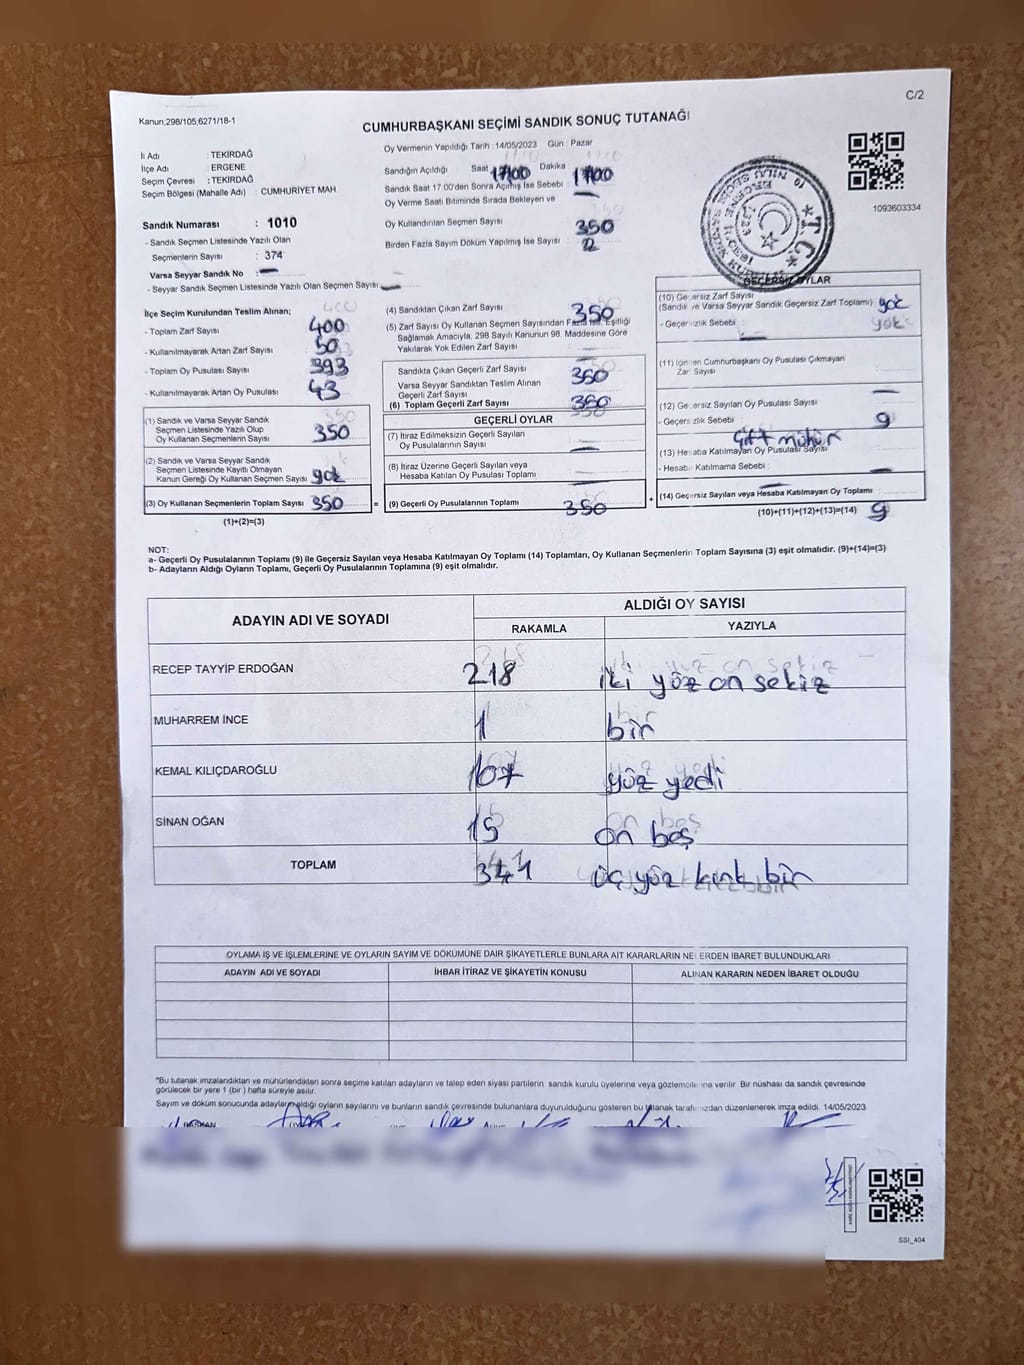 C/2
Kanun:298/105,6271/18-1
CUMHURBAŞKANI SEÇİMİ SANDIK SONUÇ TUTANAĞI
İl Adı : TEKİRDAĞ
İlçe Adı : ERGENE
Seçim Çevresi : TEKİRDAĞ
Seçim Bölgesi (Mahalle Adı) : CUMHURİYET MAH
Sandık Numarası : 1010
- Sandık Seçmen Listesinde Yazılı Olan
Seçmenlerin Sayısı : 374
Varsa Seyyar Sandık No :
- Seyyar Sandık Seçmen Listesinde Yazılı Olan Seçmen Sayısı
Oy Vermenin Yapıldığı Tarih :14/05/2023 Gün : Pazar
Sandığın Açıldığı Saat 17:00 Dakika : 17:00
Sandık Saat 17:00'den Sonra Açılmış İse Sebebi :
Oy Verme Saati Bitiminde Sırada Bekleyen ve
Oy Kullandırılan Seçmen Sayısı : 350
Birden Fazla Sayım Döküm Yapılmış İse Sayısı :
1093603334
İlçe Seçim Kurulundan Teslim Alınan;
- Toplam Zarf Sayısı : 400
- Kullanılmayarak Artan Zarf Sayısı : 50
- Toplam Oy Pusulası Sayısı : 393
- Kullanılmayarak Artan Oy Pusulası : 43
(1) Sandık ve Varsa Seyyar Sandık
Seçmen Listesinde Yazılı Olup
Oy Kullanan Seçmenlerin Sayısı : 350
(2) Sandık ve Varsa Seyyar Sandık
Seçmen Listesinde Kayıtlı Olmayan
Kanun Gereği Oy Kullanan Seçmen Sayısı yok
(3) Oy Kullanan Seçmenlerin Toplam Sayısı : 350
(1)+(2)=(3)
(4) Sandıktan Çıkan Zarf Sayısı : 350
(5) Zarf Sayısı Oy Kullanan Seçmen Sayısından Fazla İse, Eşitliği
Sağlamak Amacıyla, 298 Sayılı Kanunun 98. Maddesine Göre
Yakılarak Yok Edilen Zarf Sayısı :
Sandıkta Çıkan Geçerli Zarf Sayısı : 350
Varsa Seyyar Sandıktan Teslim Alınan
Geçerli Zarf Sayısı :
(6) Toplam Geçerli Zarf Sayısı : 350
GEÇERLİ OYLAR
(7) İtiraz Edilmeksizin Geçerli Sayılan
Oy Pusulalarının Sayısı :
(8) İtiraz Üzerine Geçerli Sayılan veya
Hesaba Katılan Oy Pusulası Toplamı :
= (9) Geçerli Oy Pusulalarının Toplamı : 350
GEÇERSİZ OYLAR
(10) Geçersiz Zarf Sayısı
(Sandık ve Varsa Seyyar Sandık Geçersiz Zarf Toplamı) yok
- Geçersizlik Sebebi :
(11) İçinden Cumhurbaşkanı Oy Pusulası Çıkmayan
Zarf Sayısı :
(12) Geçersiz Sayılan Oy Pusulası Sayısı :
- Geçersizlik Sebebi : 9
çift mühür
(13) Hesaba Katılmayan Oy Pusulası Sayısı
- Hesaba Katılmama Sebebi :
+ (14) Geçersiz Sayılan veya Hesaba Katılmayan Oy Toplamı :
(10)+(11)+(12)+(13)=(14) 9
NOT:
a- Geçerli Oy Pusulalarının Toplamı (9) ile Geçersiz Sayılan veya Hesaba Katılmayan Oy Toplamı (14) Toplamları, Oy Kullanan Seçmenlerin Toplam Sayısına (3) eşit olmalıdır. (9)+(14)=(3)
b- Adayların Aldığı Oyların Toplamı, Geçerli Oy Pusulalarının Toplamına (9) eşit olmalıdır.
ADAYIN ADI VE SOYADI
ALDIĞI OY SAYISI
RAKAMLA YAZIYLA
RECEP TAYYİP ERDOĞAN 218 iki yöz on sekiz
MUHARREM İNCE 1 bir
KEMAL KILIÇDAROĞLU 107 yöz yedi
SİNAN OĞAN 15 on beş
TOPLAM 341 üç yöz kırk bir
OYLAMA İŞ VE İŞLEMLERİNE VE OYLARIN SAYIM VE DÖKÜMÜNE DAİR ŞİKAYETLERLE BUNLARA AİT KARARLARIN NELERDEN İBARET BULUNDUKLARI
ADAYIN ADI VE SOYADI İHBAR İTİRAZ VE ŞİKAYETİN KONUSU ALINAN KARARIN NEDEN İBARET OLDUĞU
*Bu tutanak imzalandıktan ve mühürlendikten sonra seçime katılan adayların ve talep eden siyasi partilerin sandık kurulu üyelerine veya gözlemcilerine verilir. Bir nüshası da sandık çevresinde
görülecek bir yere 1 (bir ) hafta süreyle asılır.
Sayım ve döküm sonucunda adayların aldığı oyların sayılarını ve bunların sandık çevresinde bulunanlara duyurulduğunu gösteren bu tutanak tarafımızdan düzenlenerek imza edildi. 14/05/2023
SSI_404